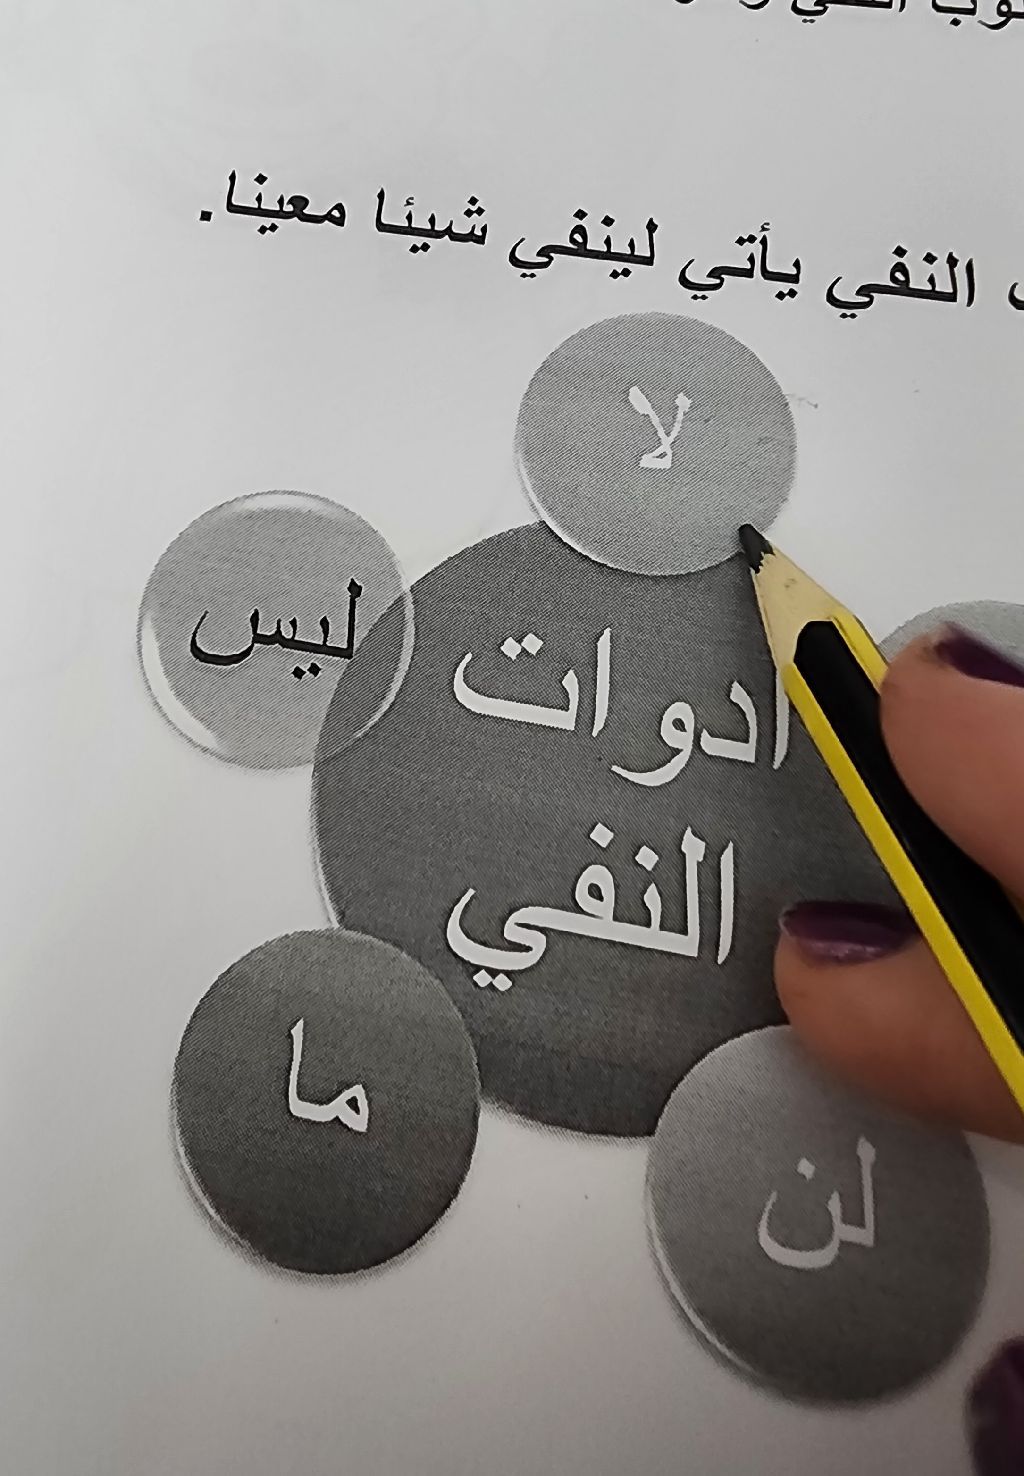 النفي يأتي لينفي شيئا معينا.
لا
ليس
ادوات
النفي
ما
لن